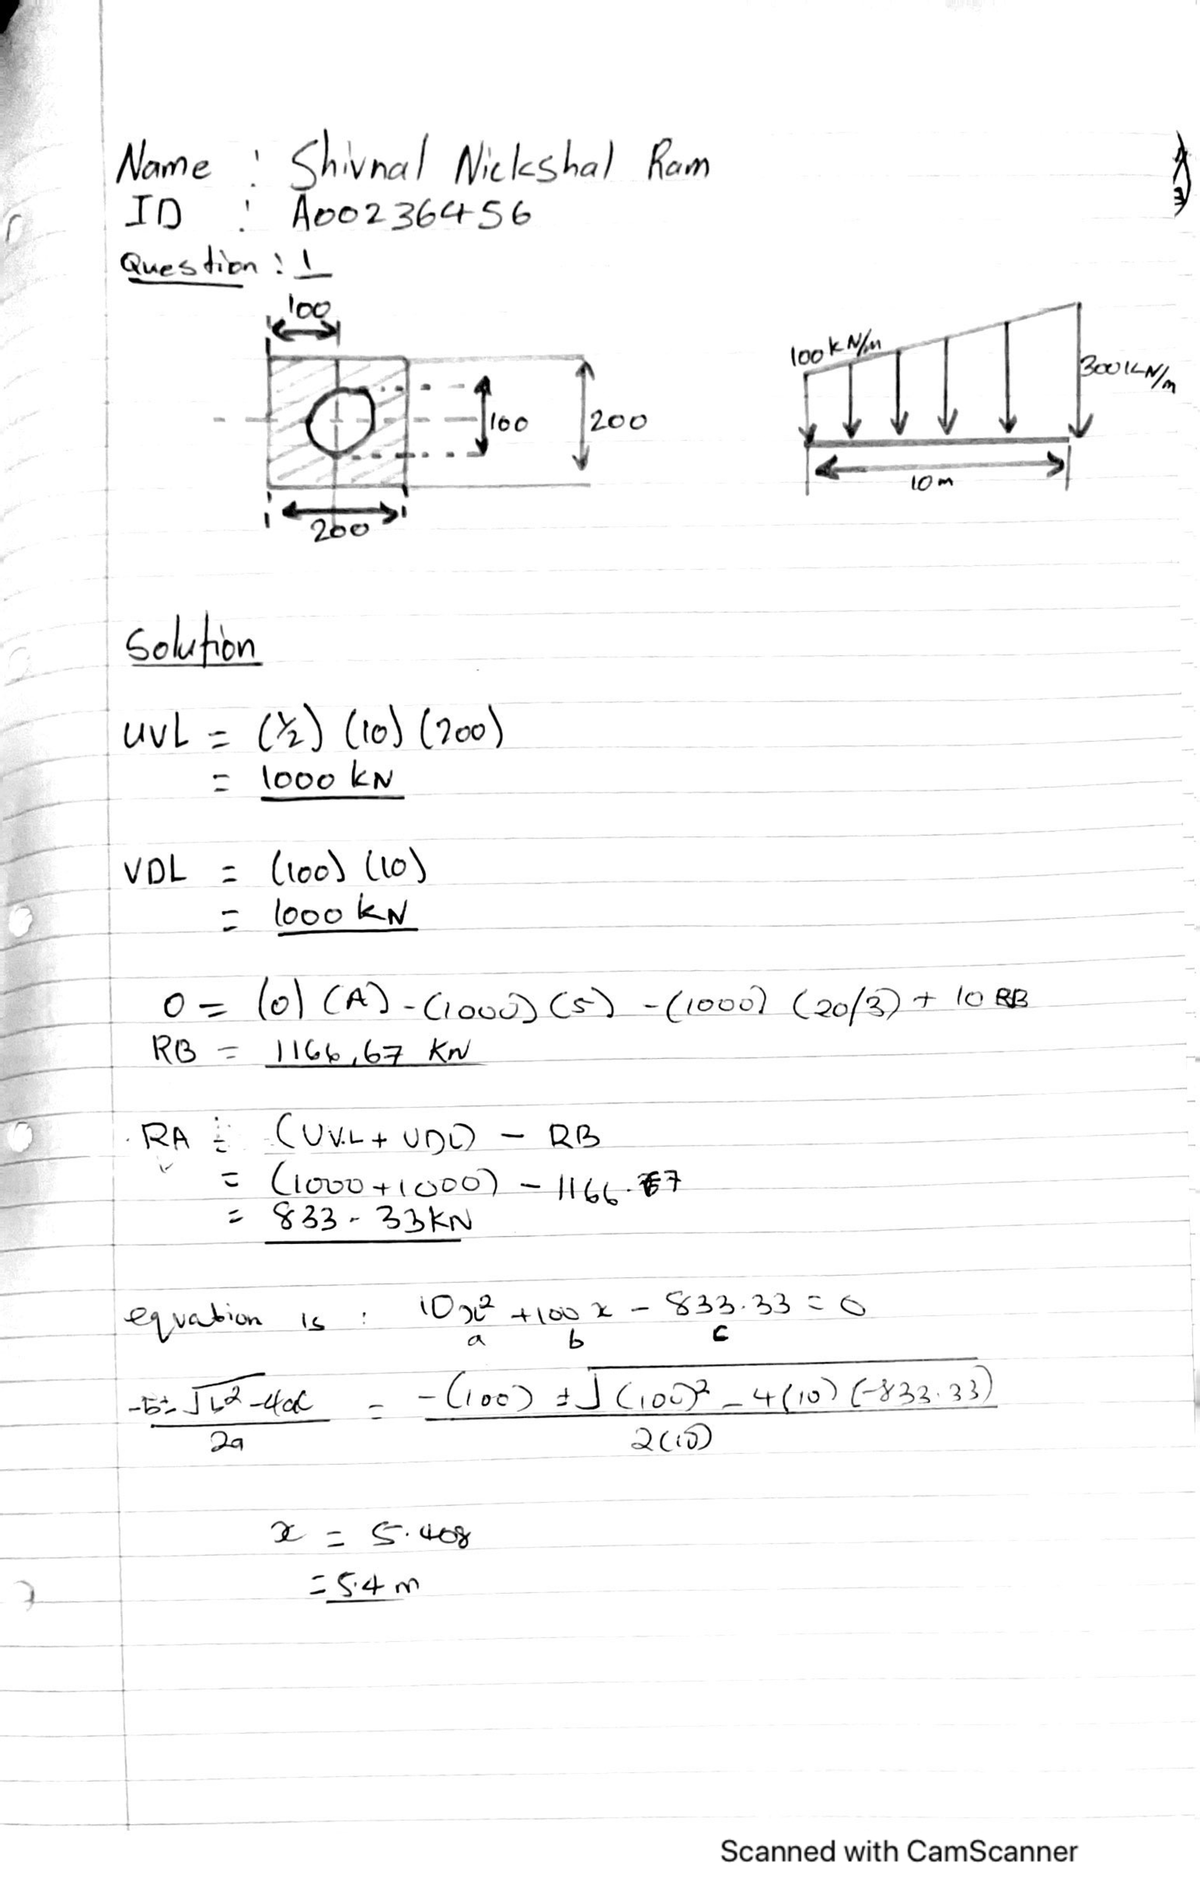 Name : Shivnal Nickshal Ram
ID : A00236456
Question : 1
100
100
200
200
100kN/m
300kN/m
10m
Solution
UVL = (1/2) (10) (200)
= 1000 kN
VDL = (100) (10)
= 1000 kN
0 = (0) (A) - (1000) (5) - (1000) (20/3) + 10 RB
RB = 1166,67 KN
RA = (UVL + UDL) - RB
= (1000+1000) - 1166.67
= 833.33KN
equation is : 10x² + 100x - 833.33 = 0
a b c
-b±√b²-4ac / 2a = -(100) ±√(100)² - 4(10)(-833.33) / 2(10)
x = 5.408
= 5.4 m
Scanned with CamScanner